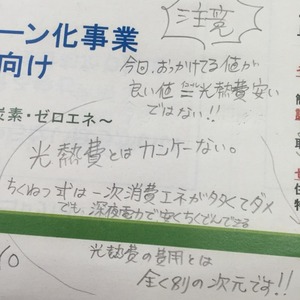 注意
ーン化事業
向け
今回、おっかけてる値が
良い値 = 光熱費安い
ではない!!
炭素・ゼロエネ〜
光熱費とはカンケーない。
ちくねつ式は一次消費エネが多くてダメ
でも、深夜電力で安くちくでんできる
光熱費の費用とは
全く別の次元です!!